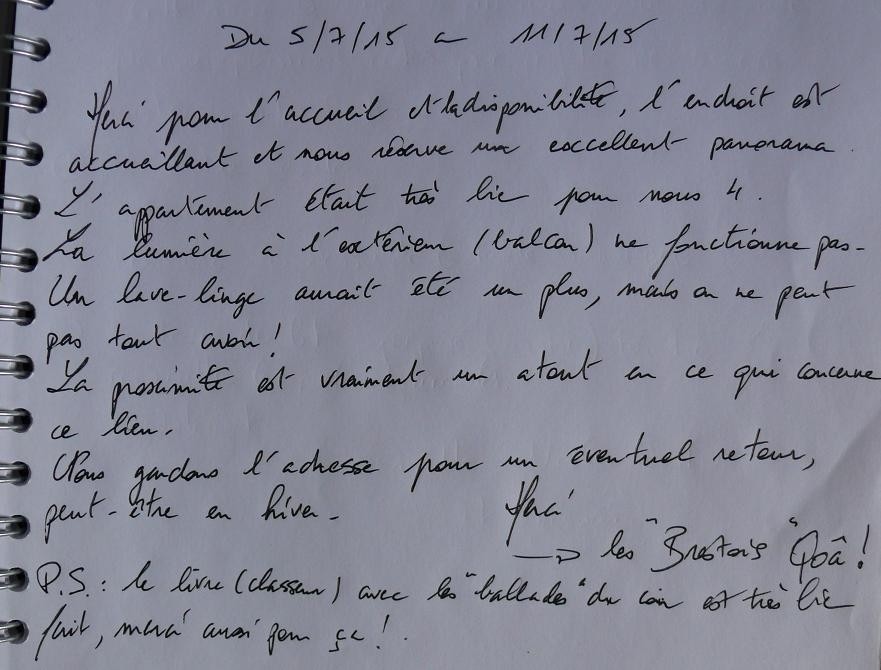 Du 5/7/15 a 11/7/15
Merci pour l'accueil et la disponibilité, l'endroit est
accueillant et nous réserve un excellent panorama.
L'appartement était très bie pour nous 4.
La lumière à l'extérieur (balcon) ne fonctionne pas-
Un lave-linge aurait été un plus, mais on ne peut
pas tout avoir!
La proximité est vraiment un atout en ce qui concerne
ce lieu.
Nous gardons l'adresse pour un éventuel retour,
peut-être en hiver-
Merci
→ les "Brestois" Qoâ!
P.S.: le livre (classeur) avec les "ballades" du coin est très bie
fait, merci aussi pour ça!.